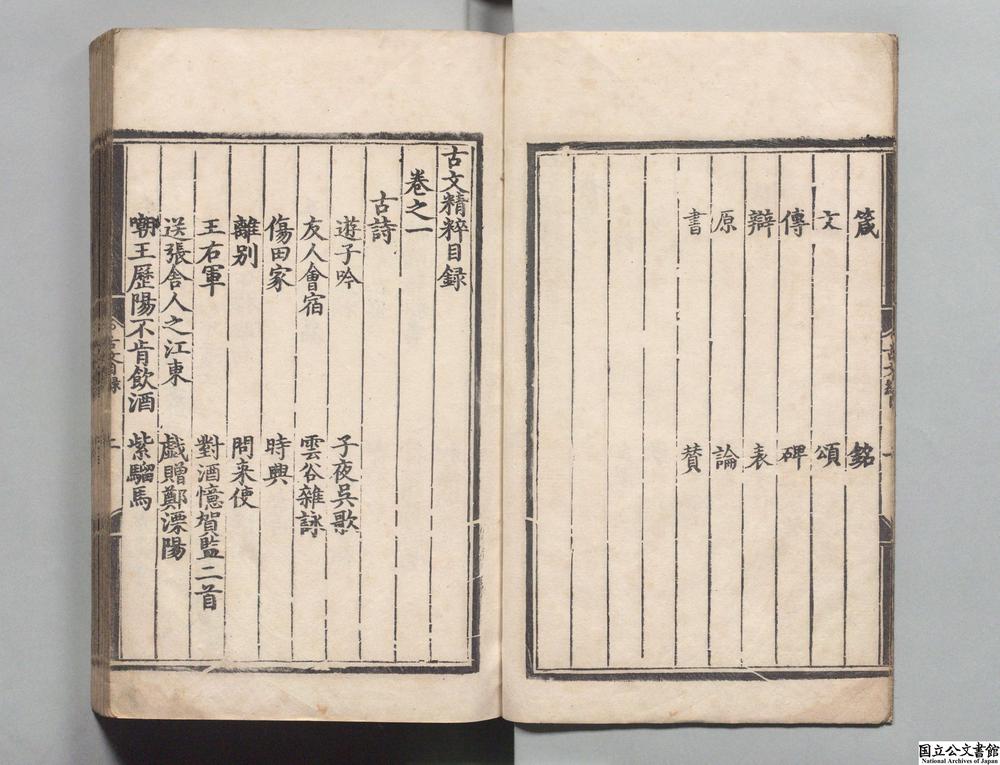 箴　銘
文　頌
傳　碑
辯　表
原　論
書　賛
古文精粹目録
卷之一
古詩
遊子吟　子夜吳歌
友人會宿　雲谷雜詠
傷田家　時興
離别　問来使
王右軍　對酒憶賀監二首
送張舍人之江東　戯贈鄭溧陽
嘲王歷陽不肯飲酒　紫騮馬
国立公文書館
National Archives of Japan